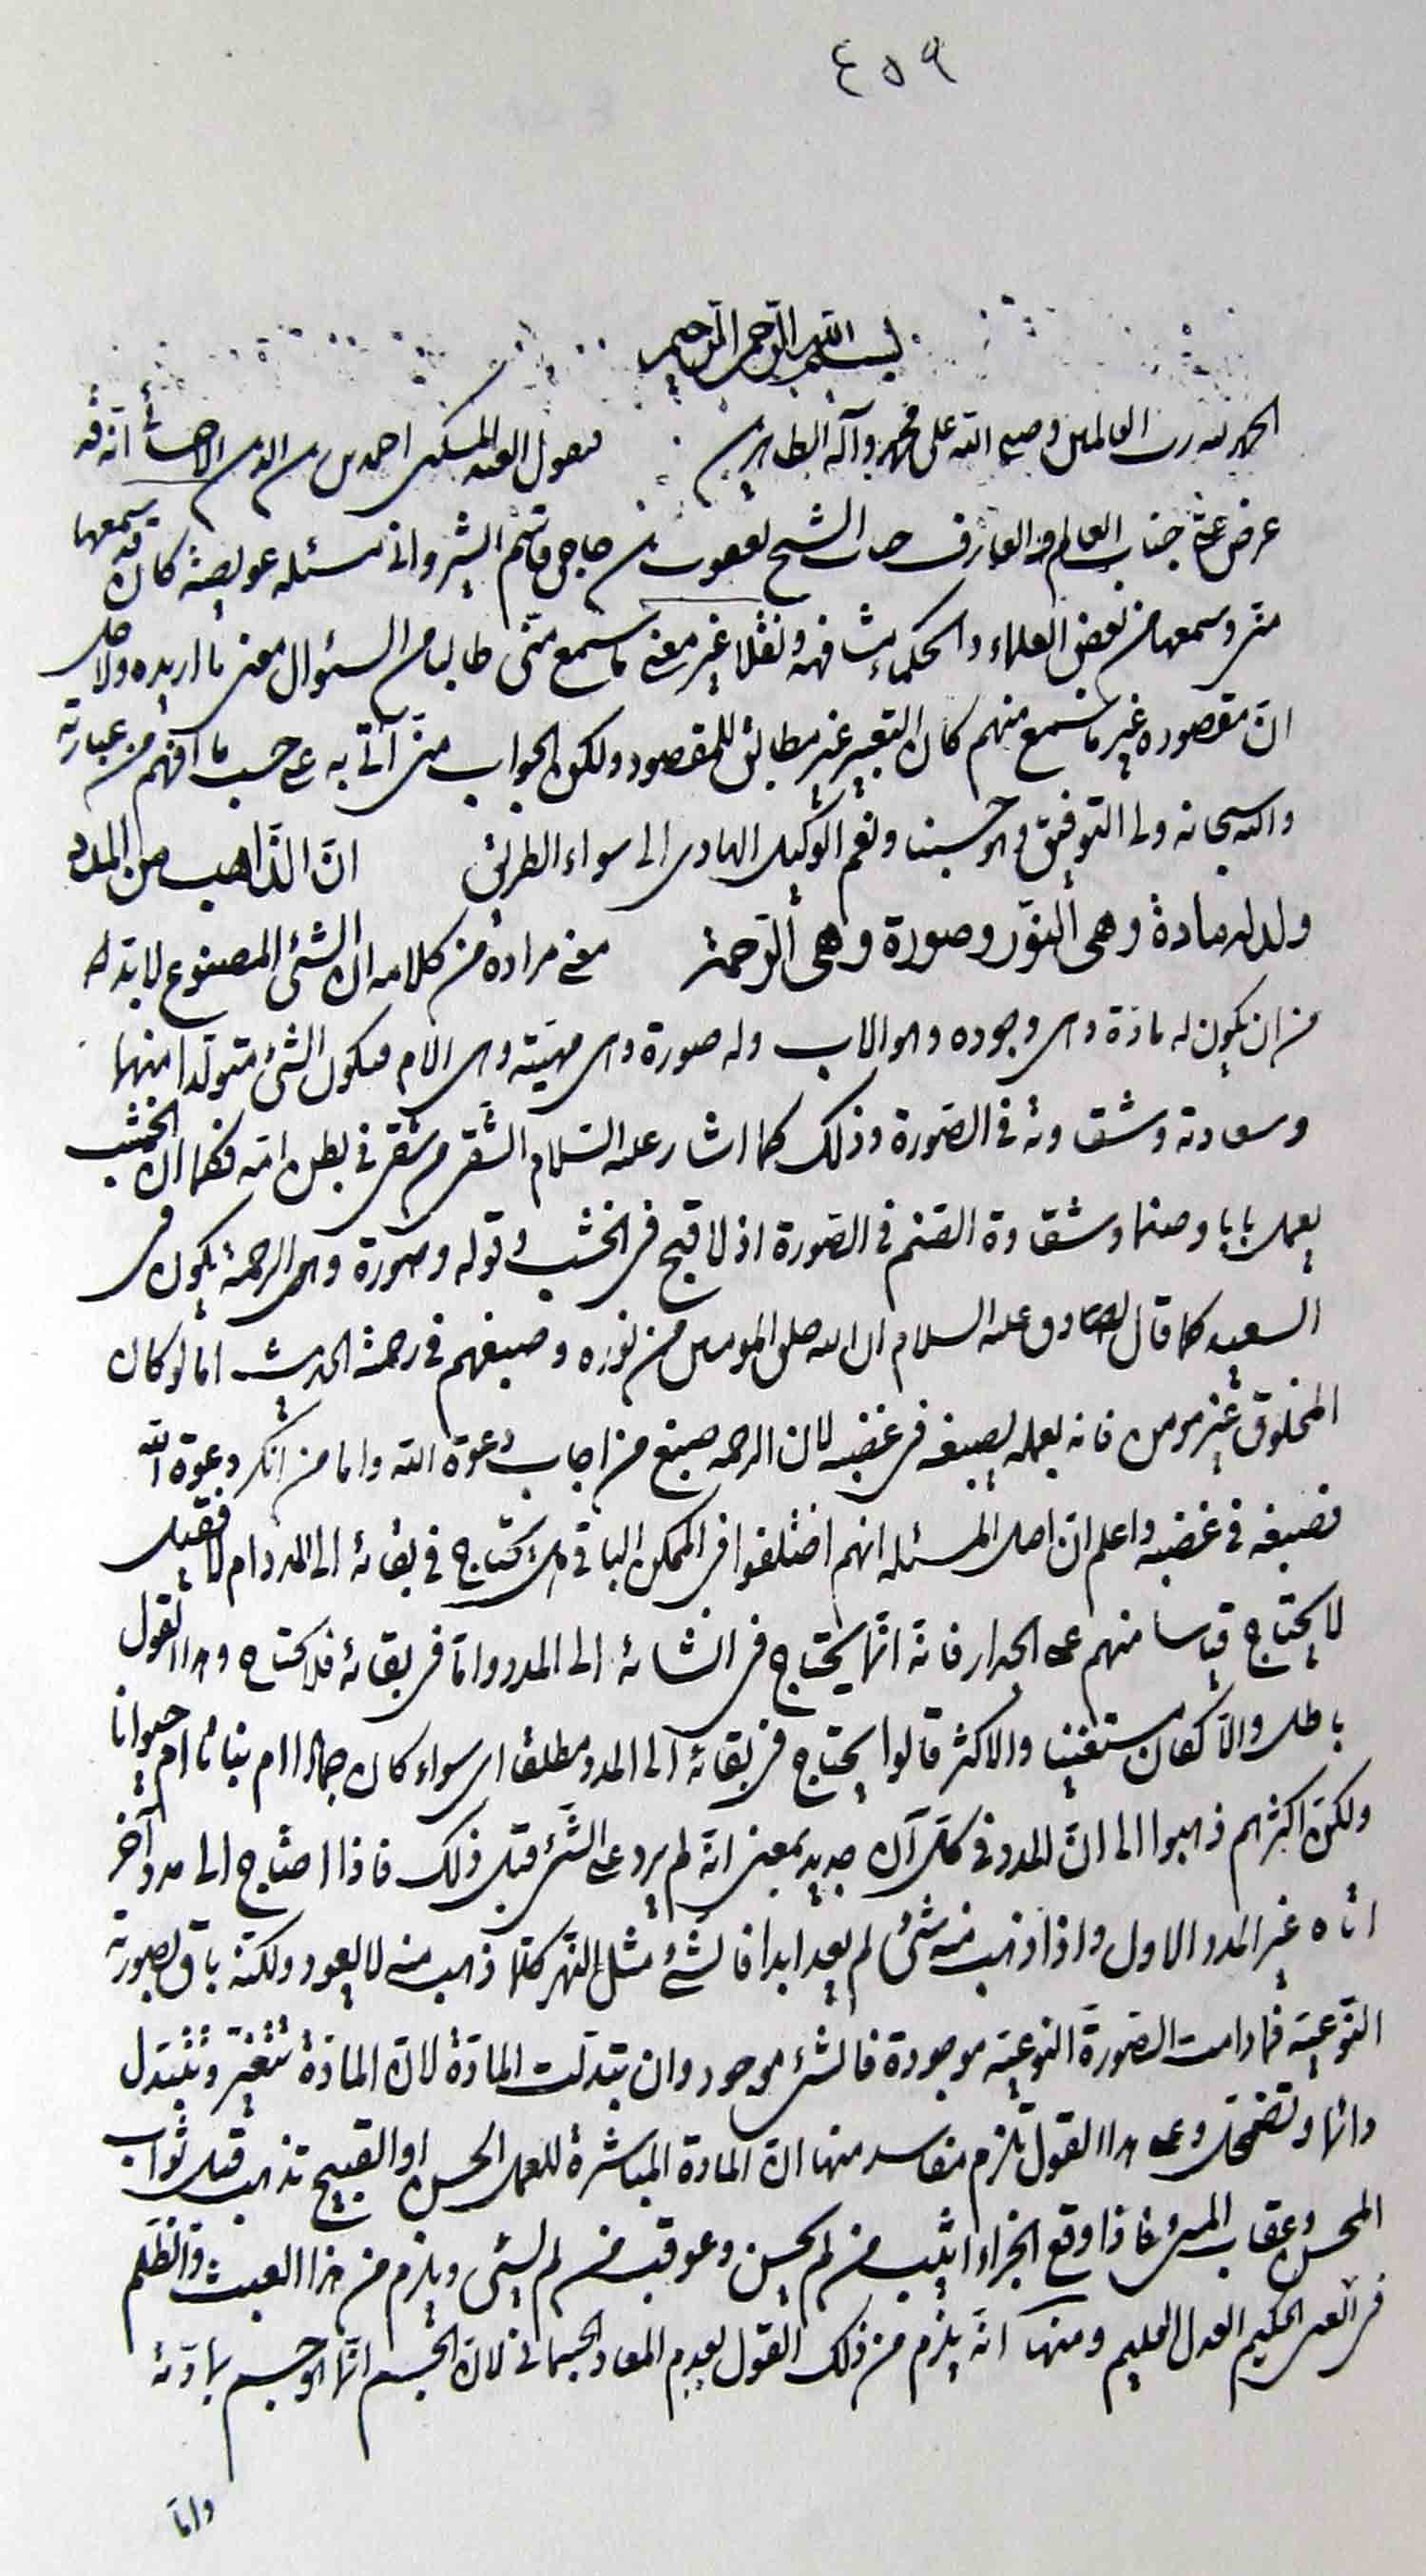 ٤٥٩
بسم الله الرحمن الرحيم
الحمد لله رب العالمين وصلى الله على محمد وآله الطاهرين فيقول العبد المسكين احمد بن زين الدين الاحسائي انه قد
عرض علي جناب العالم العارف جناب الشيخ يعقوب بن حاجي قاسم الشرواني مسئله عويصة كان قد سمعها
مني وسمعها من بعض العلماء والحكماء مشافهة ونقلا غير معنى ما سمع مني طالبا من السؤال معنى ما اريده ولاجل
ان مقصوده غير ما سمع منهم كان التعبير غير مطابق للمقصود ولكن الجواب مني آتي به على حسب ما افهم من عبارته
والله سبحانه ولي التوفيق وهو حسبنا ونعم الوكيل الهادي الى سواء الطريق ان الذاهب من المدد
ولد له مادة وهي النور وصورة وهي الرحمة معنى مراده من كلامه ان الشئ المصنوع لا بد له
من ان يكون له مادة وهي وجوده وهو الاب وله صورة وهي مهيته وهي الام فيكون الشئ متولدا منهما
وسعادته وشقاوته في الصورة وذلك كما اشار عليه السلام الشقي من شقي في بطن امه فكما ان الخشب
يعمل بابا وصنما وشقاوة الصنم في الصورة اذ لا قبح في الخشب وقوله وصورة وهي الرحمة يكون في
السعيد كما قال الصادق عليه السلام ان الله خلق المؤمنين من نوره وصبغهم في رحمته الحديث اما لو كان
المخلوق غير مومن فانه بعمله يصبغه في غضبه لان الرحمة صبغ من اجاب دعوة الله واما من انكر دعوة الله
فصبغه في غضبه واعلم ان اصل المسئله انهم اختلفوا في الممكن الباقي هل يحتاج في بقائه الى المدد ام لا فقيل
لا يحتاج قياسا منهم على الجدار فانه انما يحتاج في انشائه الى المدد واما في بقائه فلا يحتاج وهذا القول
باطل والا لكان مستغنيا والاكثر قالوا يحتاج في بقائه الى المدد مطلقا اي سواء كان جمادا ام نباتا ام حيوانا
ولكن اكثرهم ذهبوا الى ان المدد في كل آن جديد بمعنى انه لم يرد على الشئ قبل ذلك فاذا احتاج الى مدد آخر
اتاه غير المدد الاول واذا ذهب منه شئ لم يعد ابدا فالشئ مثل النهر كلما ذهب منه لا يعود ولكنه باق بصورته
النوعية فما دامت الصورة النوعية موجودة فالشئ موجود وان تبدلت المادة لان المادة تتغير وتتبدل
دائما وتضمحل وعلى هذا القول يلزم مفاسد منها ان المادة المباشرة للعمل الحسن او القبيح تذهب قبل ثواب
المحسن وعقاب المسئ فاذا وقع الجزاء اثيب من لم يحسن وعوقب من لم يسئ ويلزم من هذا العبث والظلم
في الغني الحكيم العدل العليم ومنها انه يلزم من ذلك القول بعدم المعاد الجسماني لان الجسم انما هو جسم بمادته
واما